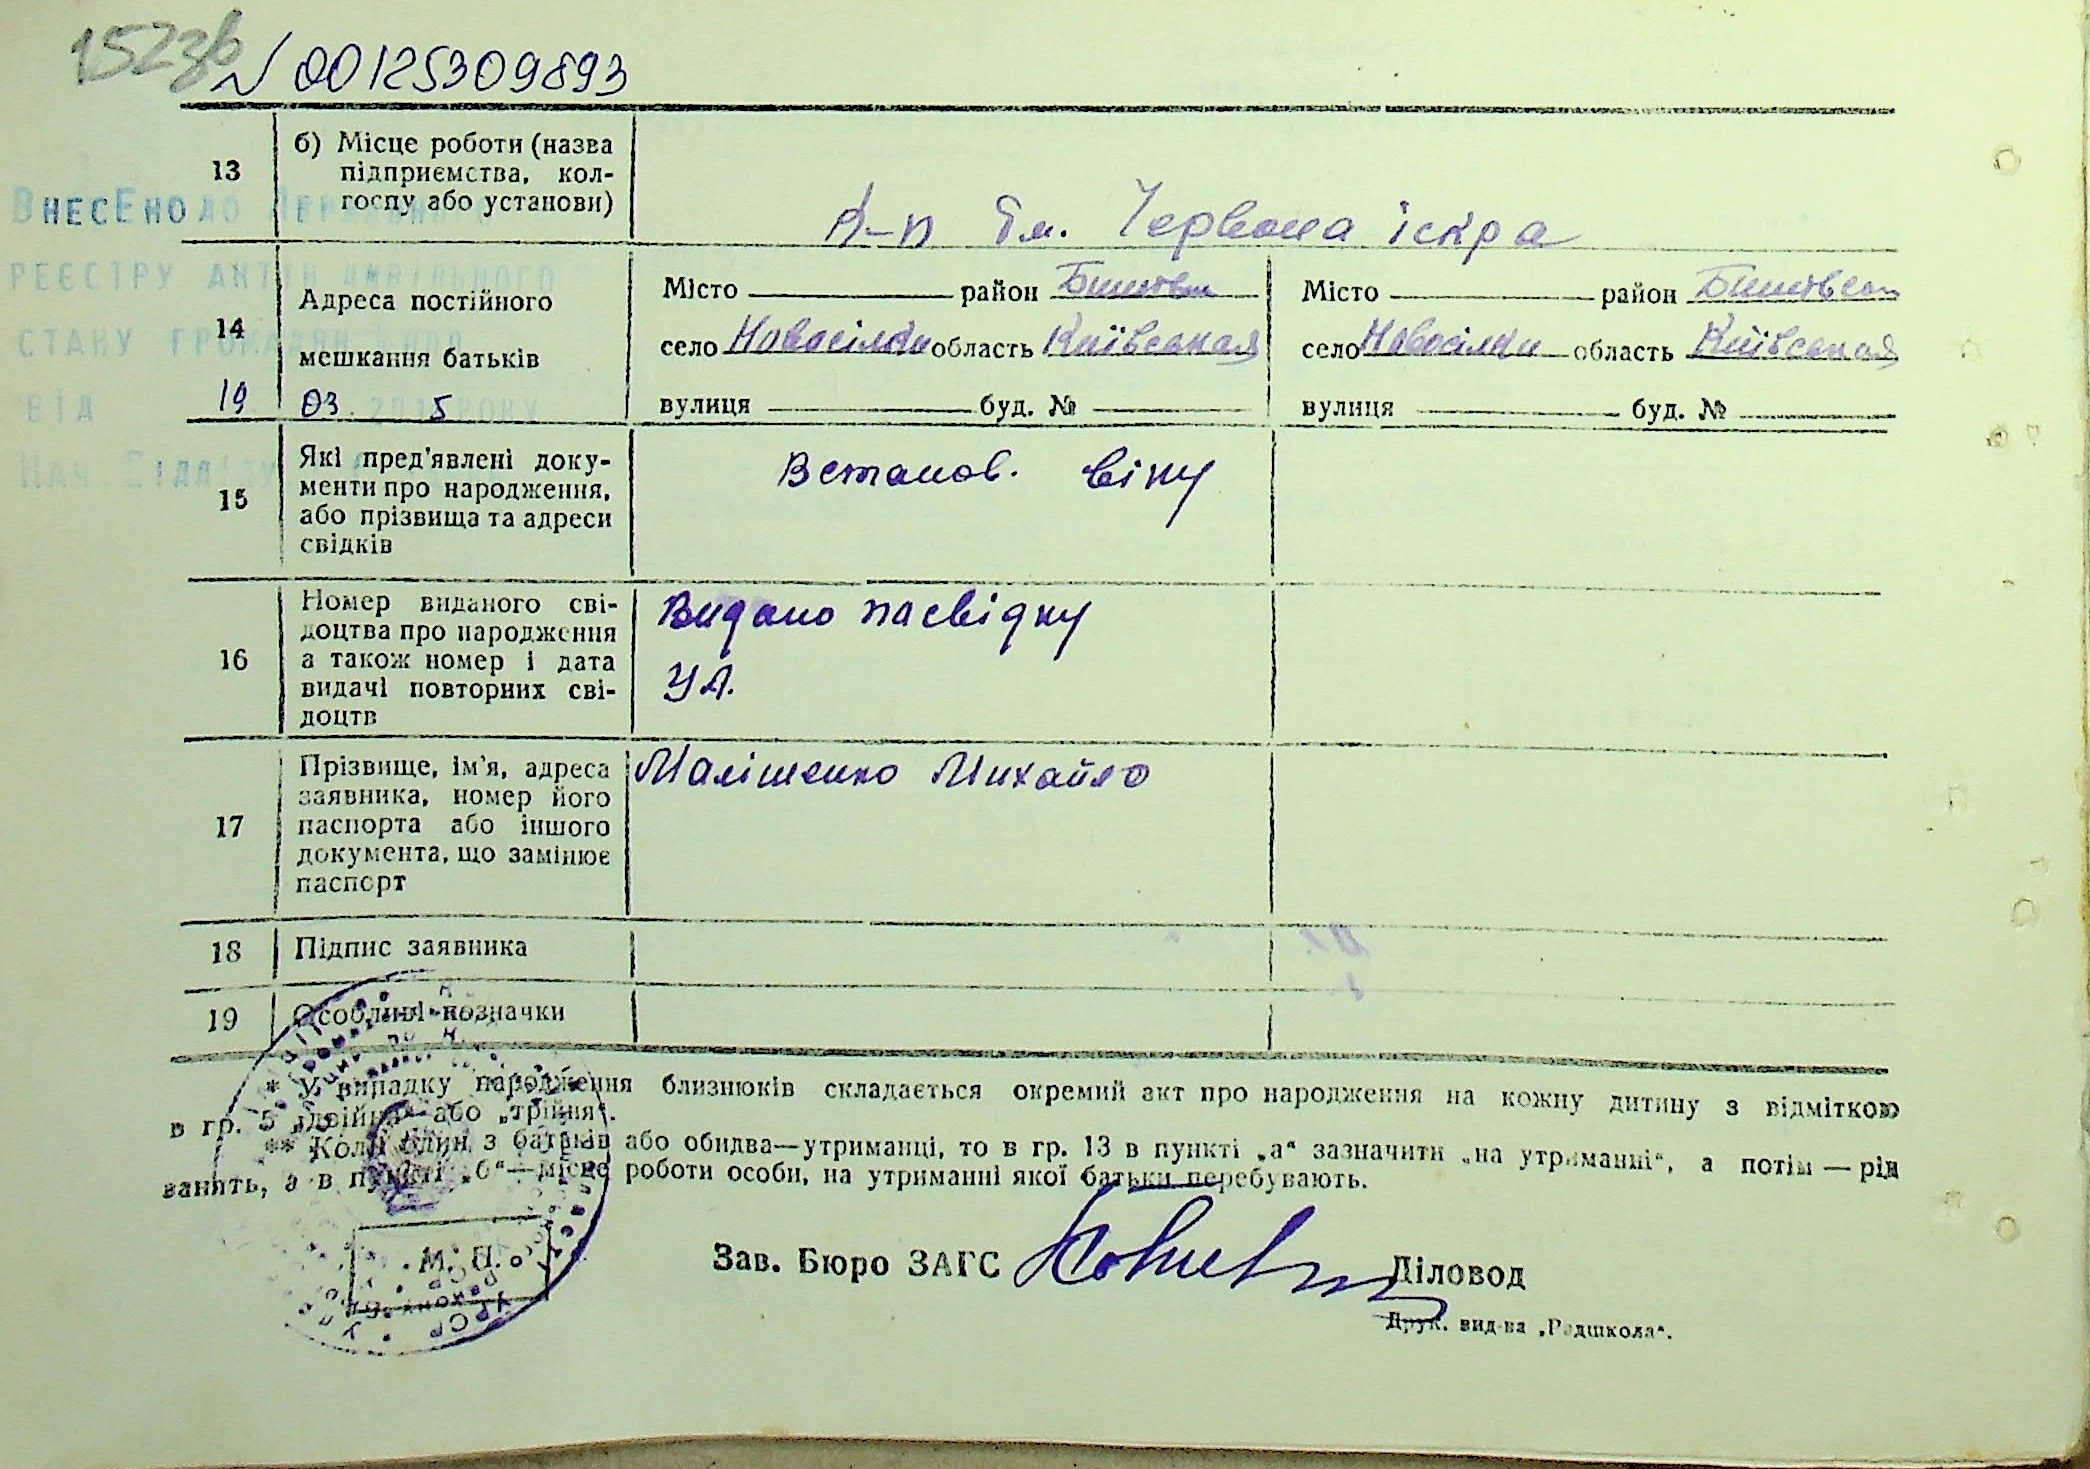 152зв
N 00125309893
13
б) Місце роботи (назва
підприємства, кол-
госпу або установи)
К-п Ім. Червона іскра
ВнесЕно до Державного
реєстру актів цивільного
стану громадян
від 19 03. 2015 року
Нач. відділу
14
Адреса постійного
мешкання батьків
Місто район
село Новосілки область Київськая
вулиця буд. №
Місто район
село Новосілки область Київськая
вулиця буд. №
15
Які пред'явлені доку-
менти про народження,
або прізвища та адреси
свідків
Встанов. віку
16
Номер виданого сві-
доцтва про народження
а також номер і дата
видачі повторних сві-
доцтв
Видано посвідку
17
Прізвище, ім'я, адреса
заявника, номер його
паспорта або іншого
документа, що замінює
паспорт
Малішенко Михайло
18
Підпис заявника
19
Особливі позначки
* У випадку народження близнюків складається окремий акт про народження на кожну дитину з відміткою
в гр. 5 „двійня“ або „трійня“.
** Коли один з батьків або обидва—утриманці, то в гр. 13 в пункті „а“ зазначити „на утриманні“, а потім — рід
занять, а в пункті „б“—місце роботи особи, на утриманні якої батьки перебувають.
М. П.
Зав. Бюро ЗАГС
Діловод
Друк. вид-ва „Радшкола“.